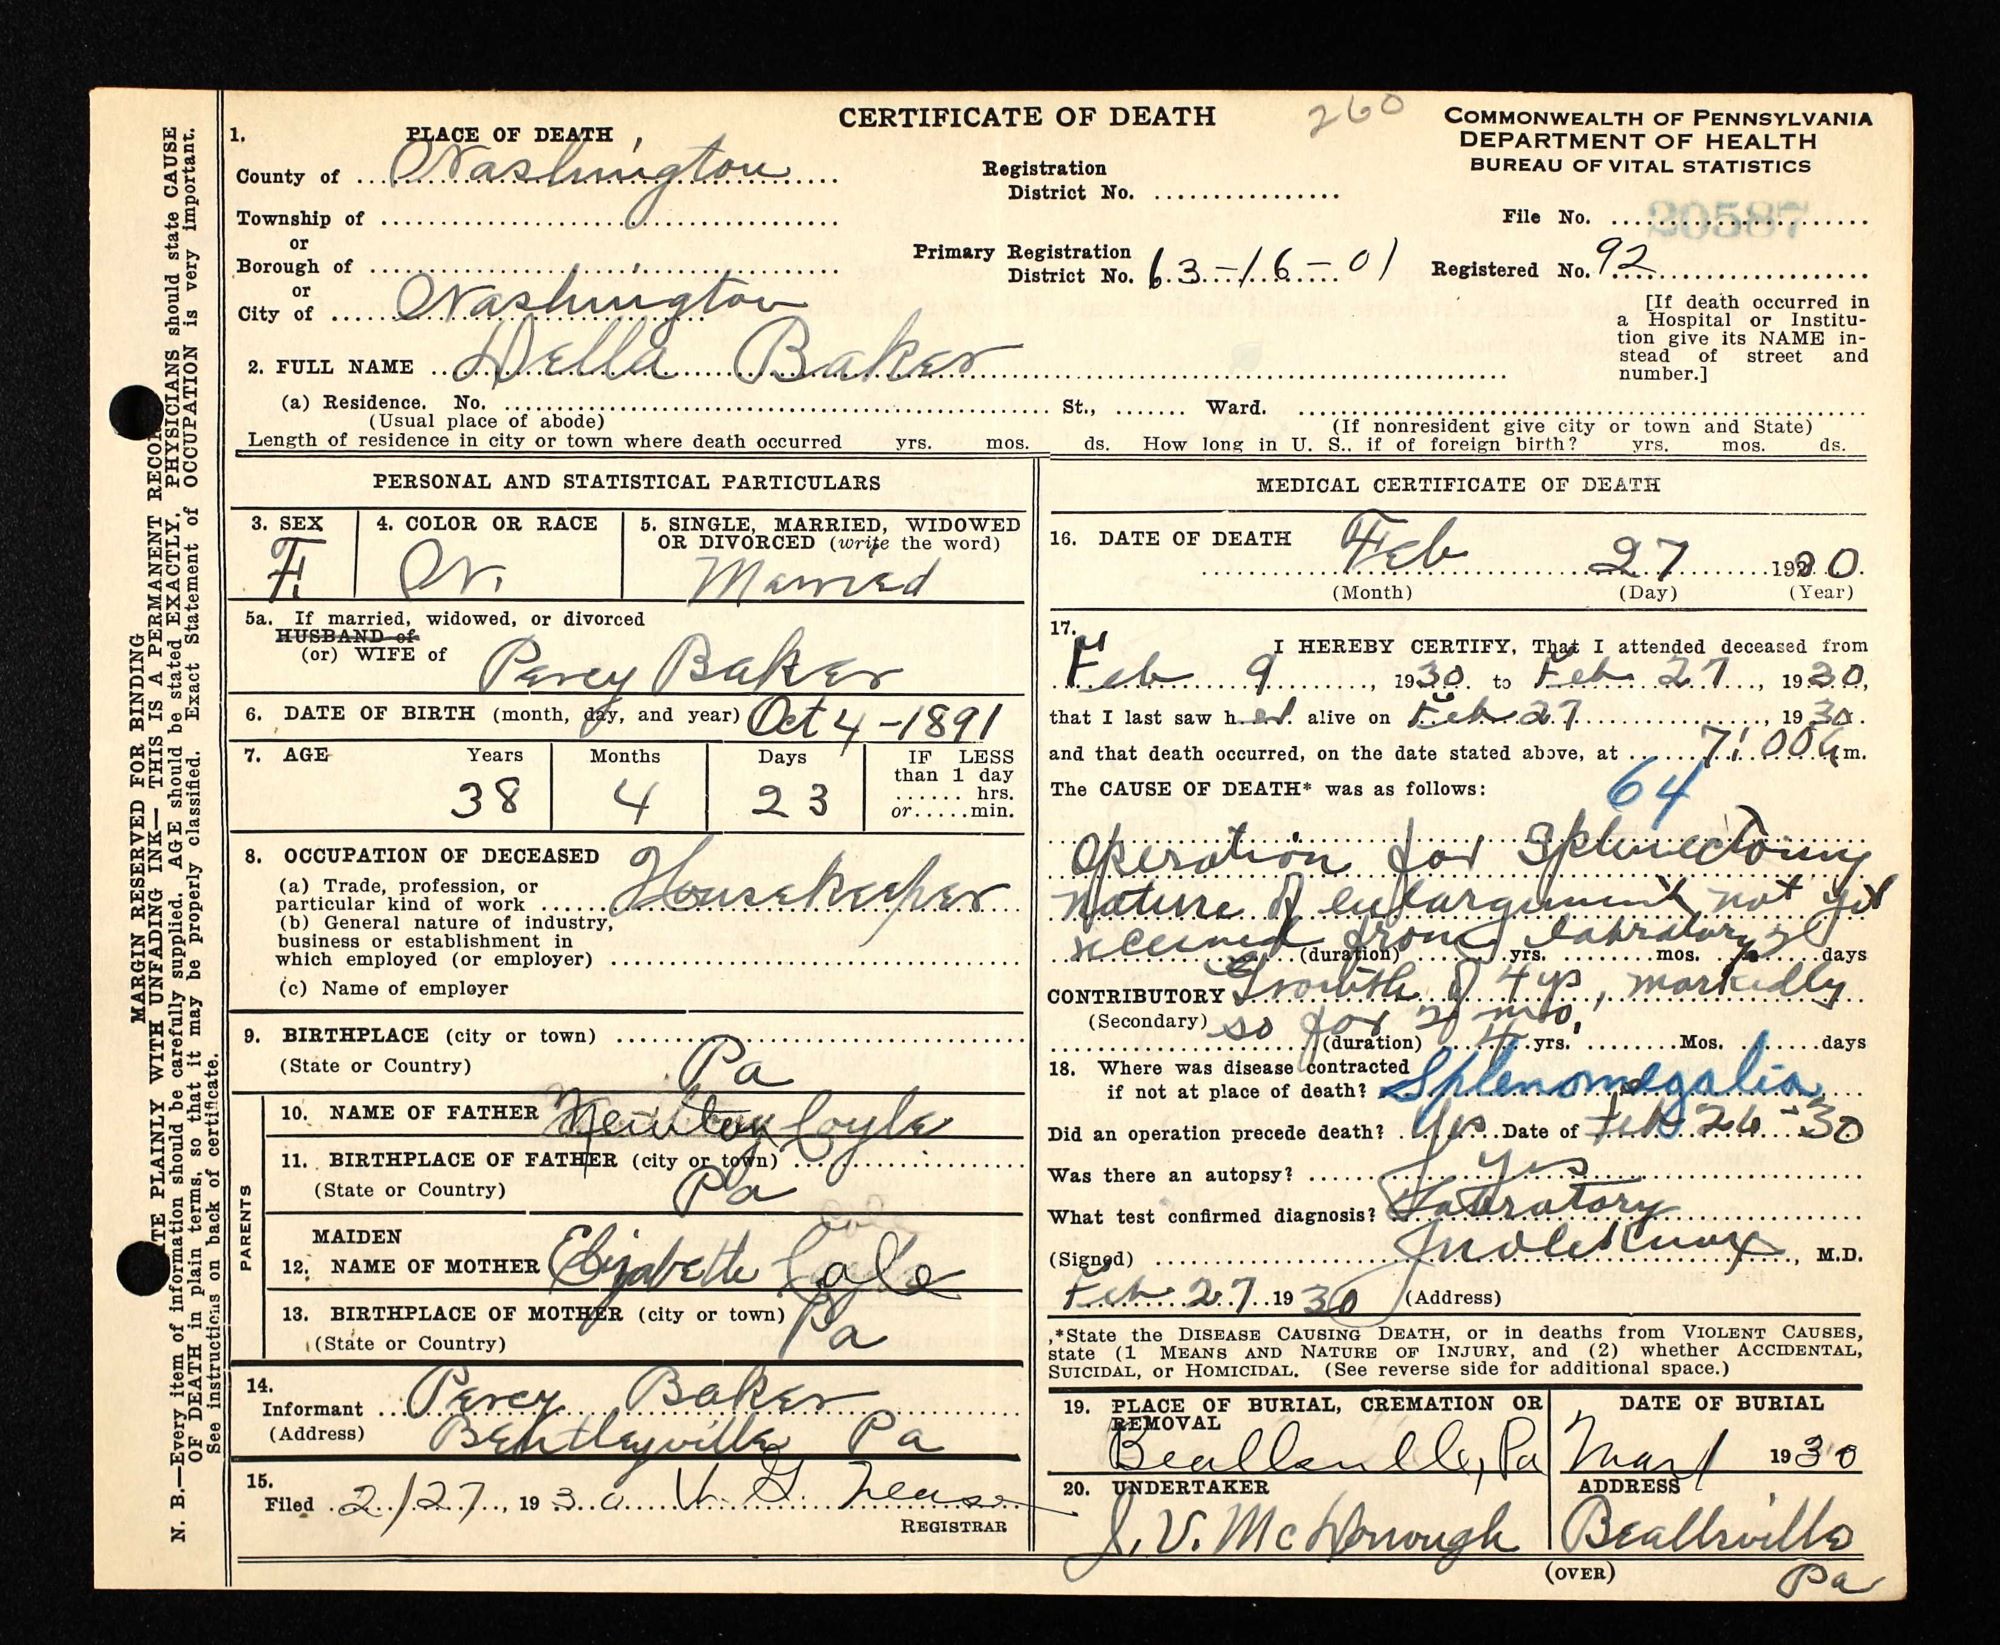 CERTIFICATE OF DEATH
260
COMMONWEALTH OF PENNSYLVANIA
DEPARTMENT OF HEALTH
BUREAU OF VITAL STATISTICS
1. PLACE OF DEATH
County of Washington
Township of
or
Borough of
or
City of Washington
Registration
District No.
Primary Registration
District No. 63-16-01
File No. 20587
Registered No. 92
[If death occurred in
a Hospital or Institu-
tion give its NAME in-
stead of street and
number.]
2. FULL NAME Della Baker
(a) Residence. No. St., Ward.
(Usual place of abode) (If nonresident give city or town and State)
Length of residence in city or town where death occurred yrs. mos. ds. How long in U. S., if of foreign birth? yrs. mos. ds.
PERSONAL AND STATISTICAL PARTICULARS
3. SEX
F.
4. COLOR OR RACE
W.
5. SINGLE, MARRIED, WIDOWED
OR DIVORCED (write the word)
Married
5a. If married, widowed, or divorced
HUSBAND of
(or) WIFE of Percy Baker
6. DATE OF BIRTH (month, day, and year) Oct 4-1891
7. AGE Years Months Days IF LESS
than 1 day
hrs.
or min.
38 4 23
8. OCCUPATION OF DECEASED
(a) Trade, profession, or
particular kind of work Housekeeper
(b) General nature of industry,
business or establishment in
which employed (or employer)
(c) Name of employer
9. BIRTHPLACE (city or town)
(State or Country) Pa
PARENTS
10. NAME OF FATHER Newton Coyle
11. BIRTHPLACE OF FATHER (city or town)
(State or Country) Pa
MAIDEN
12. NAME OF MOTHER Elizabeth Cole
13. BIRTHPLACE OF MOTHER (city or town)
(State or Country) Pa
14.
Informant Percy Baker
(Address) Bentleyville Pa
15.
Filed 2/27, 1930
REGISTRAR
MEDICAL CERTIFICATE OF DEATH
16. DATE OF DEATH Feb 27 1930
(Month) (Day) (Year)
17. I HEREBY CERTIFY, That I attended deceased from
Feb 9, 1930 to Feb 27, 1930,
that I last saw her alive on Feb 27, 1930
and that death occurred, on the date stated above, at 7:00 a m.
The CAUSE OF DEATH* was as follows:
64
Operation for Splenectomy
nature of enlargement not yet
received from labratory
(duration) yrs. mos. days
CONTRIBUTORY Growth of 4 yrs, markedly
(Secondary) so for 2 mo.
(duration) 4 yrs. Mos. days
18. Where was disease contracted
if not at place of death? Splenomegalia
Did an operation precede death? Yes Date of Feb 26-30
Was there an autopsy? Yes
What test confirmed diagnosis? Labratory
(Signed) , M.D.
Feb 27 1930 (Address)
*State the DISEASE CAUSING DEATH, or in deaths from VIOLENT CAUSES,
state (1 MEANS AND NATURE OF INJURY, and (2) whether ACCIDENTAL,
SUICIDAL, or HOMICIDAL. (See reverse side for additional space.)
19. PLACE OF BURIAL, CREMATION OR
REMOVAL
Beallsville, Pa
DATE OF BURIAL
Mar 1 1930
20. UNDERTAKER
J. V. McDonough
ADDRESS
Beallsville
Pa
(OVER)
MARGIN RESERVED FOR BINDING
WRITE PLAINLY WITH UNFADING INK—THIS IS A PERMANENT RECORD
N. B.—Every item of information should be carefully supplied. AGE should be stated EXACTLY. PHYSICIANS should state CAUSE
OF DEATH in plain terms, so that it may be properly classified. Exact Statement of OCCUPATION is very important.
See instructions on back of certificate.